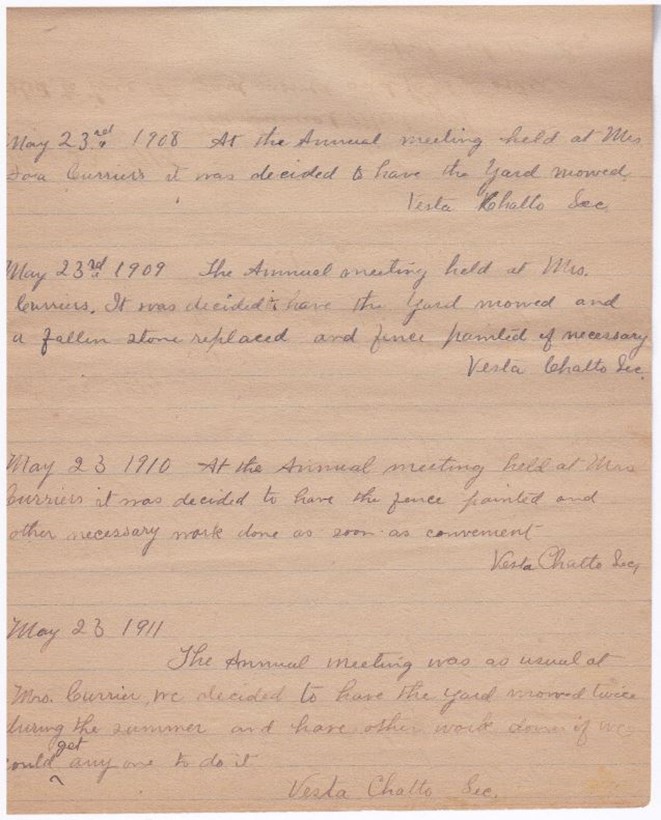 May 23rd 1908 At the Annual meeting held at Mrs
Curriers it was decided to have the Yard mowed.
Vesta Chatto Sec.
May 23rd 1909 The Annual meeting held at Mrs.
Curriers. It was decided to have the Yard mowed and
a fallen stone replaced and fence painted if necessary
Vesta Chatto Sec.
May 23 1910 At the Annual meeting held at Mrs
Curriers it was decided to have the fence painted and
other necessary work done as soon as convenient
Vesta Chatto Sec,
May 23 1911
The Annual meeting was as usual at
Mrs. Currier, we decided to have the yard mowed twice
during the summer and have other work done if we
could get any one to do it
Vesta Chatto Sec.